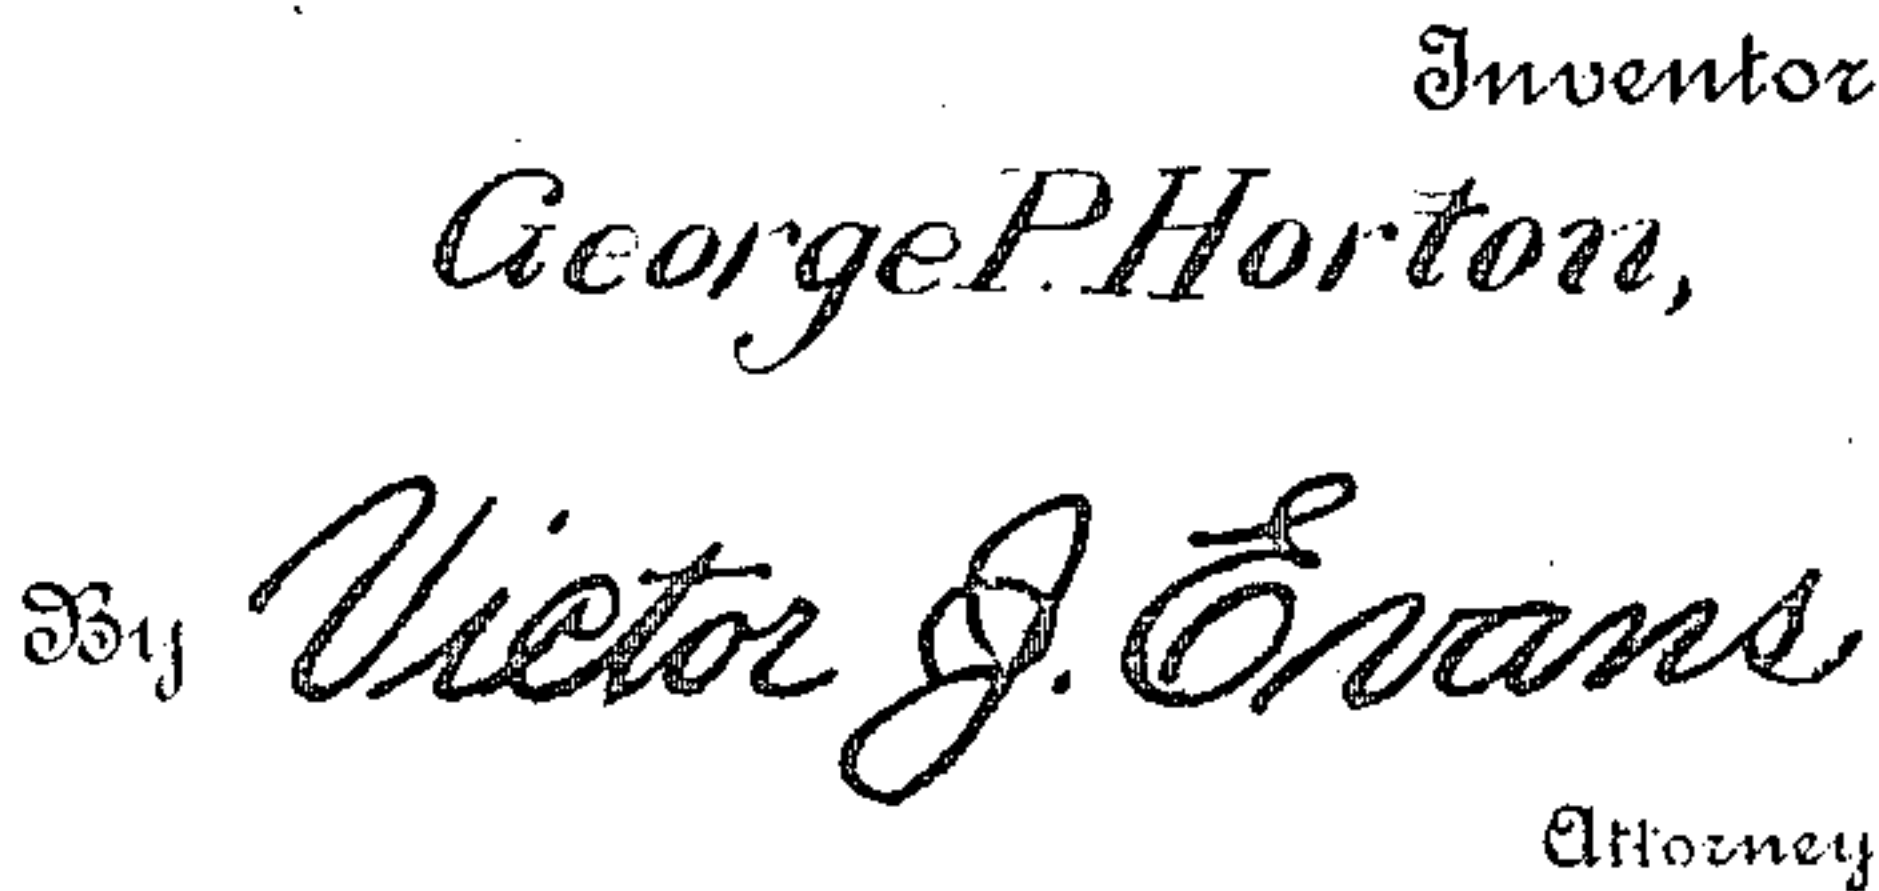 Inventor
George P. Horton,
By Victor J. Evans
Attorney